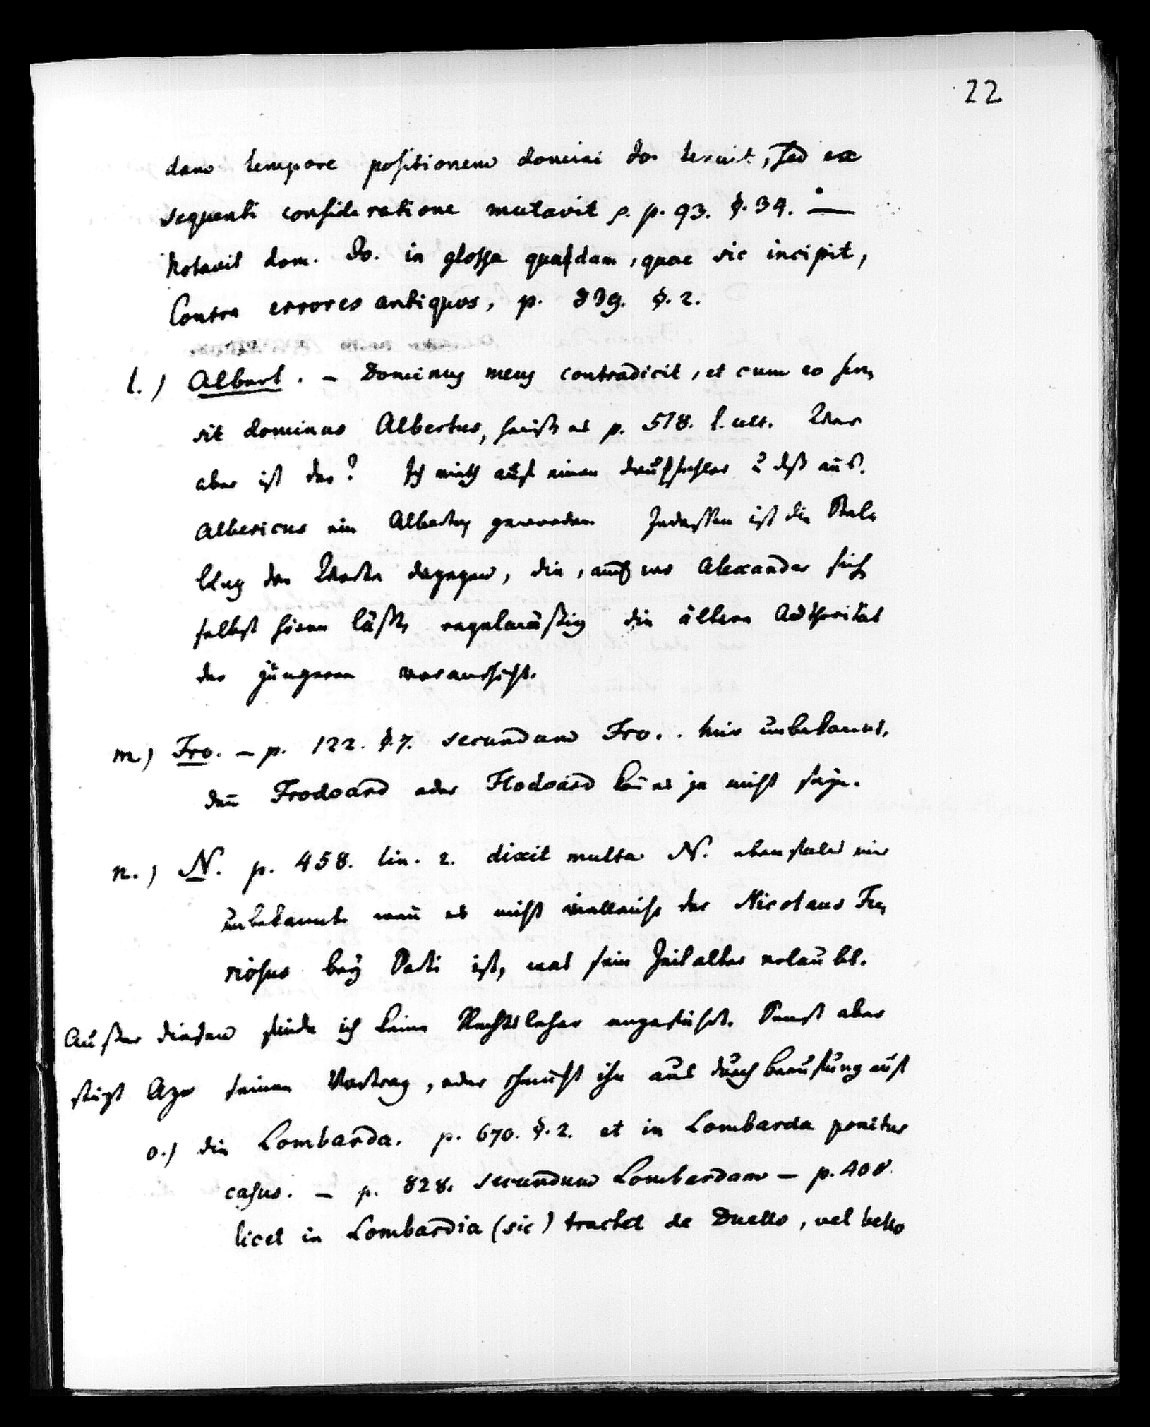 22
dam tempore positionem domini Jo. tenuit, sed ex
sequenti consideratione mutavit p. p. 93. §. 34. —
Notavit dom. Jo. in glossa quadam, quae sic incipit,
Contra errores antiquos, p. 839. §. 2.
l.) Albert. – Dominus meus contradicit, et cum eo sen,
sit dominus Albertus, heißt es p. 518. l. ult. Wer
aber ist der? Ich rieth auf einen Druckfehler u daß aus
Albericus ein Albertus geworden Indessen ist die Stel,
lung der Worte dagegen, die, auch wo Alexander sich
selbst hören läßt, regelmäßig die ältere Authorität
der jüngeren voransetzt.
m.) Fro. – p. 122. §. 7. secundum Fro. . mir unbekannt,
den Frodoard oder Flodoard kan es ja nicht seyn.
n.) N. p. 458. lin. 2. dixit multa N. ebenfals mir
unbekannt wan es nicht vielleicht der Nicolaus Fu,
riosus bey Sarti ist, was sein Zeitalter erlaubt.
Außer diesen finde ich keine Rechtslehrer angeführt. Sonst aber
stüzt Azo seinen Vortrag, oder schmückt ihn aus durch Berufung auf
o.) die Lombarda. p. 670. §. 2. et in Lombarda ponitur
casus. – p. 828. secundum Lombardam – p. 408
licet in Lombardia (sic) tractet de Duello, vel bello